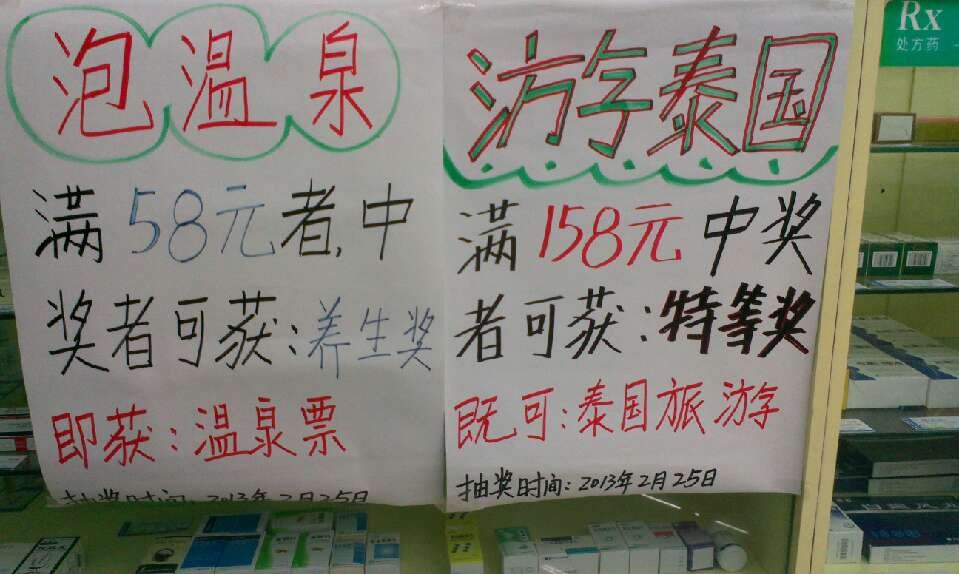 泡温泉
满58元者,中
奖者可获:养生奖
即获:温泉票
抽奖时间:2013年2月25日
游泰国
满158元中奖
者可获:特等奖
既可:泰国旅游
抽奖时间:2013年2月25日
Rx
处方药